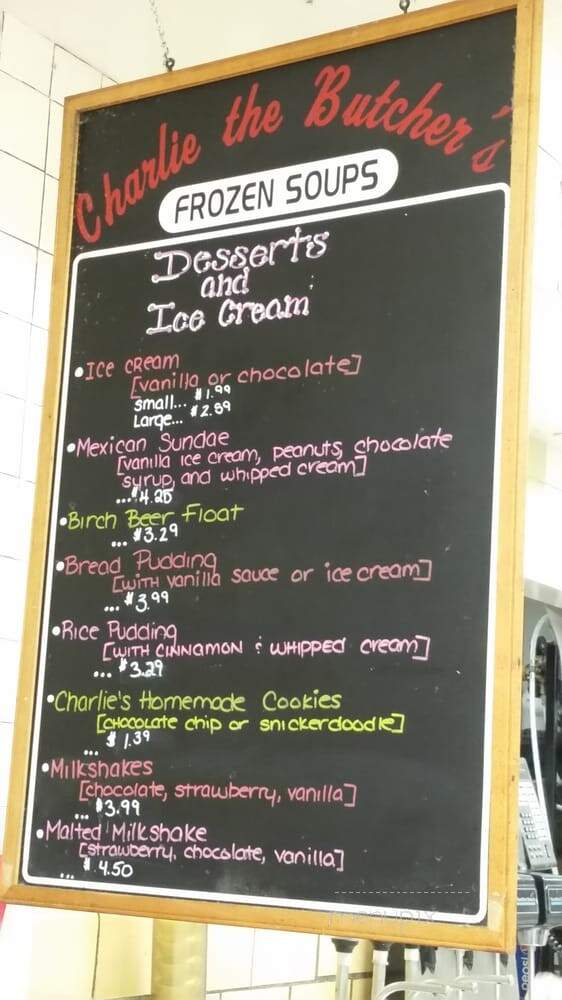 Charlie the Butcher's
FROZEN SOUPS
Desserts
and
Ice Cream
• Ice cream
[vanilla or chocolate]
small... $1.99
Large... $2.59
• Mexican Sundae
[vanilla ice cream, peanuts, chocolate
syrup, and whipped cream]
...$4.25
• Birch Beer Float
... $3.29
• Bread Pudding
[with vanilla sauce or ice cream]
... $3.99
• Rice Pudding
[with cinnamon & whipped cream]
... $3.29
• Charlie's Homemade Cookies
[chocolate chip or snickerdoodle]
... $1.39
• Milkshakes
[chocolate, strawberry, vanilla]
... $3.99
• Malted Milkshake
[strawberry, chocolate, vanilla]
... $4.50
menupix